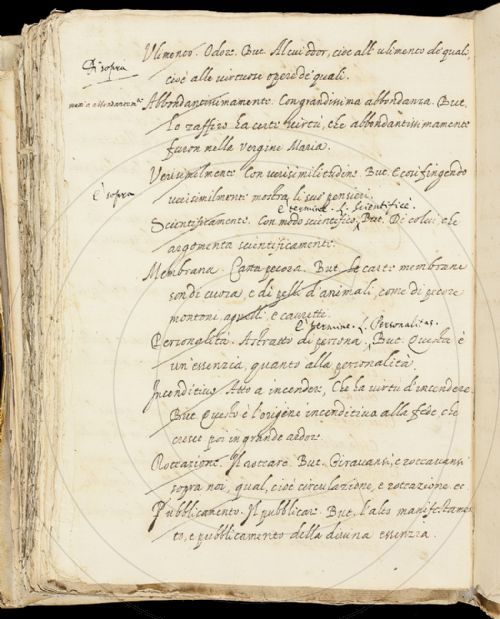 Ulimento. Odore. But. Al cui odor, cioè all'ulimento de' quali,
È sopra
cioè alle virtuose opere de' quali.
Abbondantissimamente. Con grandissima abbondanza. But.
Lo zaffiro ha certe virtù, che abbondantissimamente
furon nella Vergine Maria.
Verisimilmente. Con verisimilitudine. But. E così fingendo
verisimilmente mostra li suoi pensieri.
È sopra
È termine. L. Scientifice.
Scientificamente. Con modo scientifico. But. Di colui che
argomenta scientificamente.
Membrana. Carta pecora. But. Le carte membrane
son di cuoia, e di pelli d'animali, come di pecore
montoni, agnelli, e cavretti.
È termine. L. Personalitas.
Personalità. Astratto di persona. But. Questa è
un'essenzia, quanto alla personalità.
Incenditivo. Atto a incendere, Che ha virtù d'incendere.
But. Questo è l'origine incenditiva alla fede che
crebbe poi in grande ardore.
Roteazione. Il roteare. But. Giravansi, e roteavansi
sopra noi, qual, cioè circulazione, e roteazione ec
Pubblicamento. Il pubblicare. But. L'alto manifestamen-
to, e pubblicamento della divina essenzia.